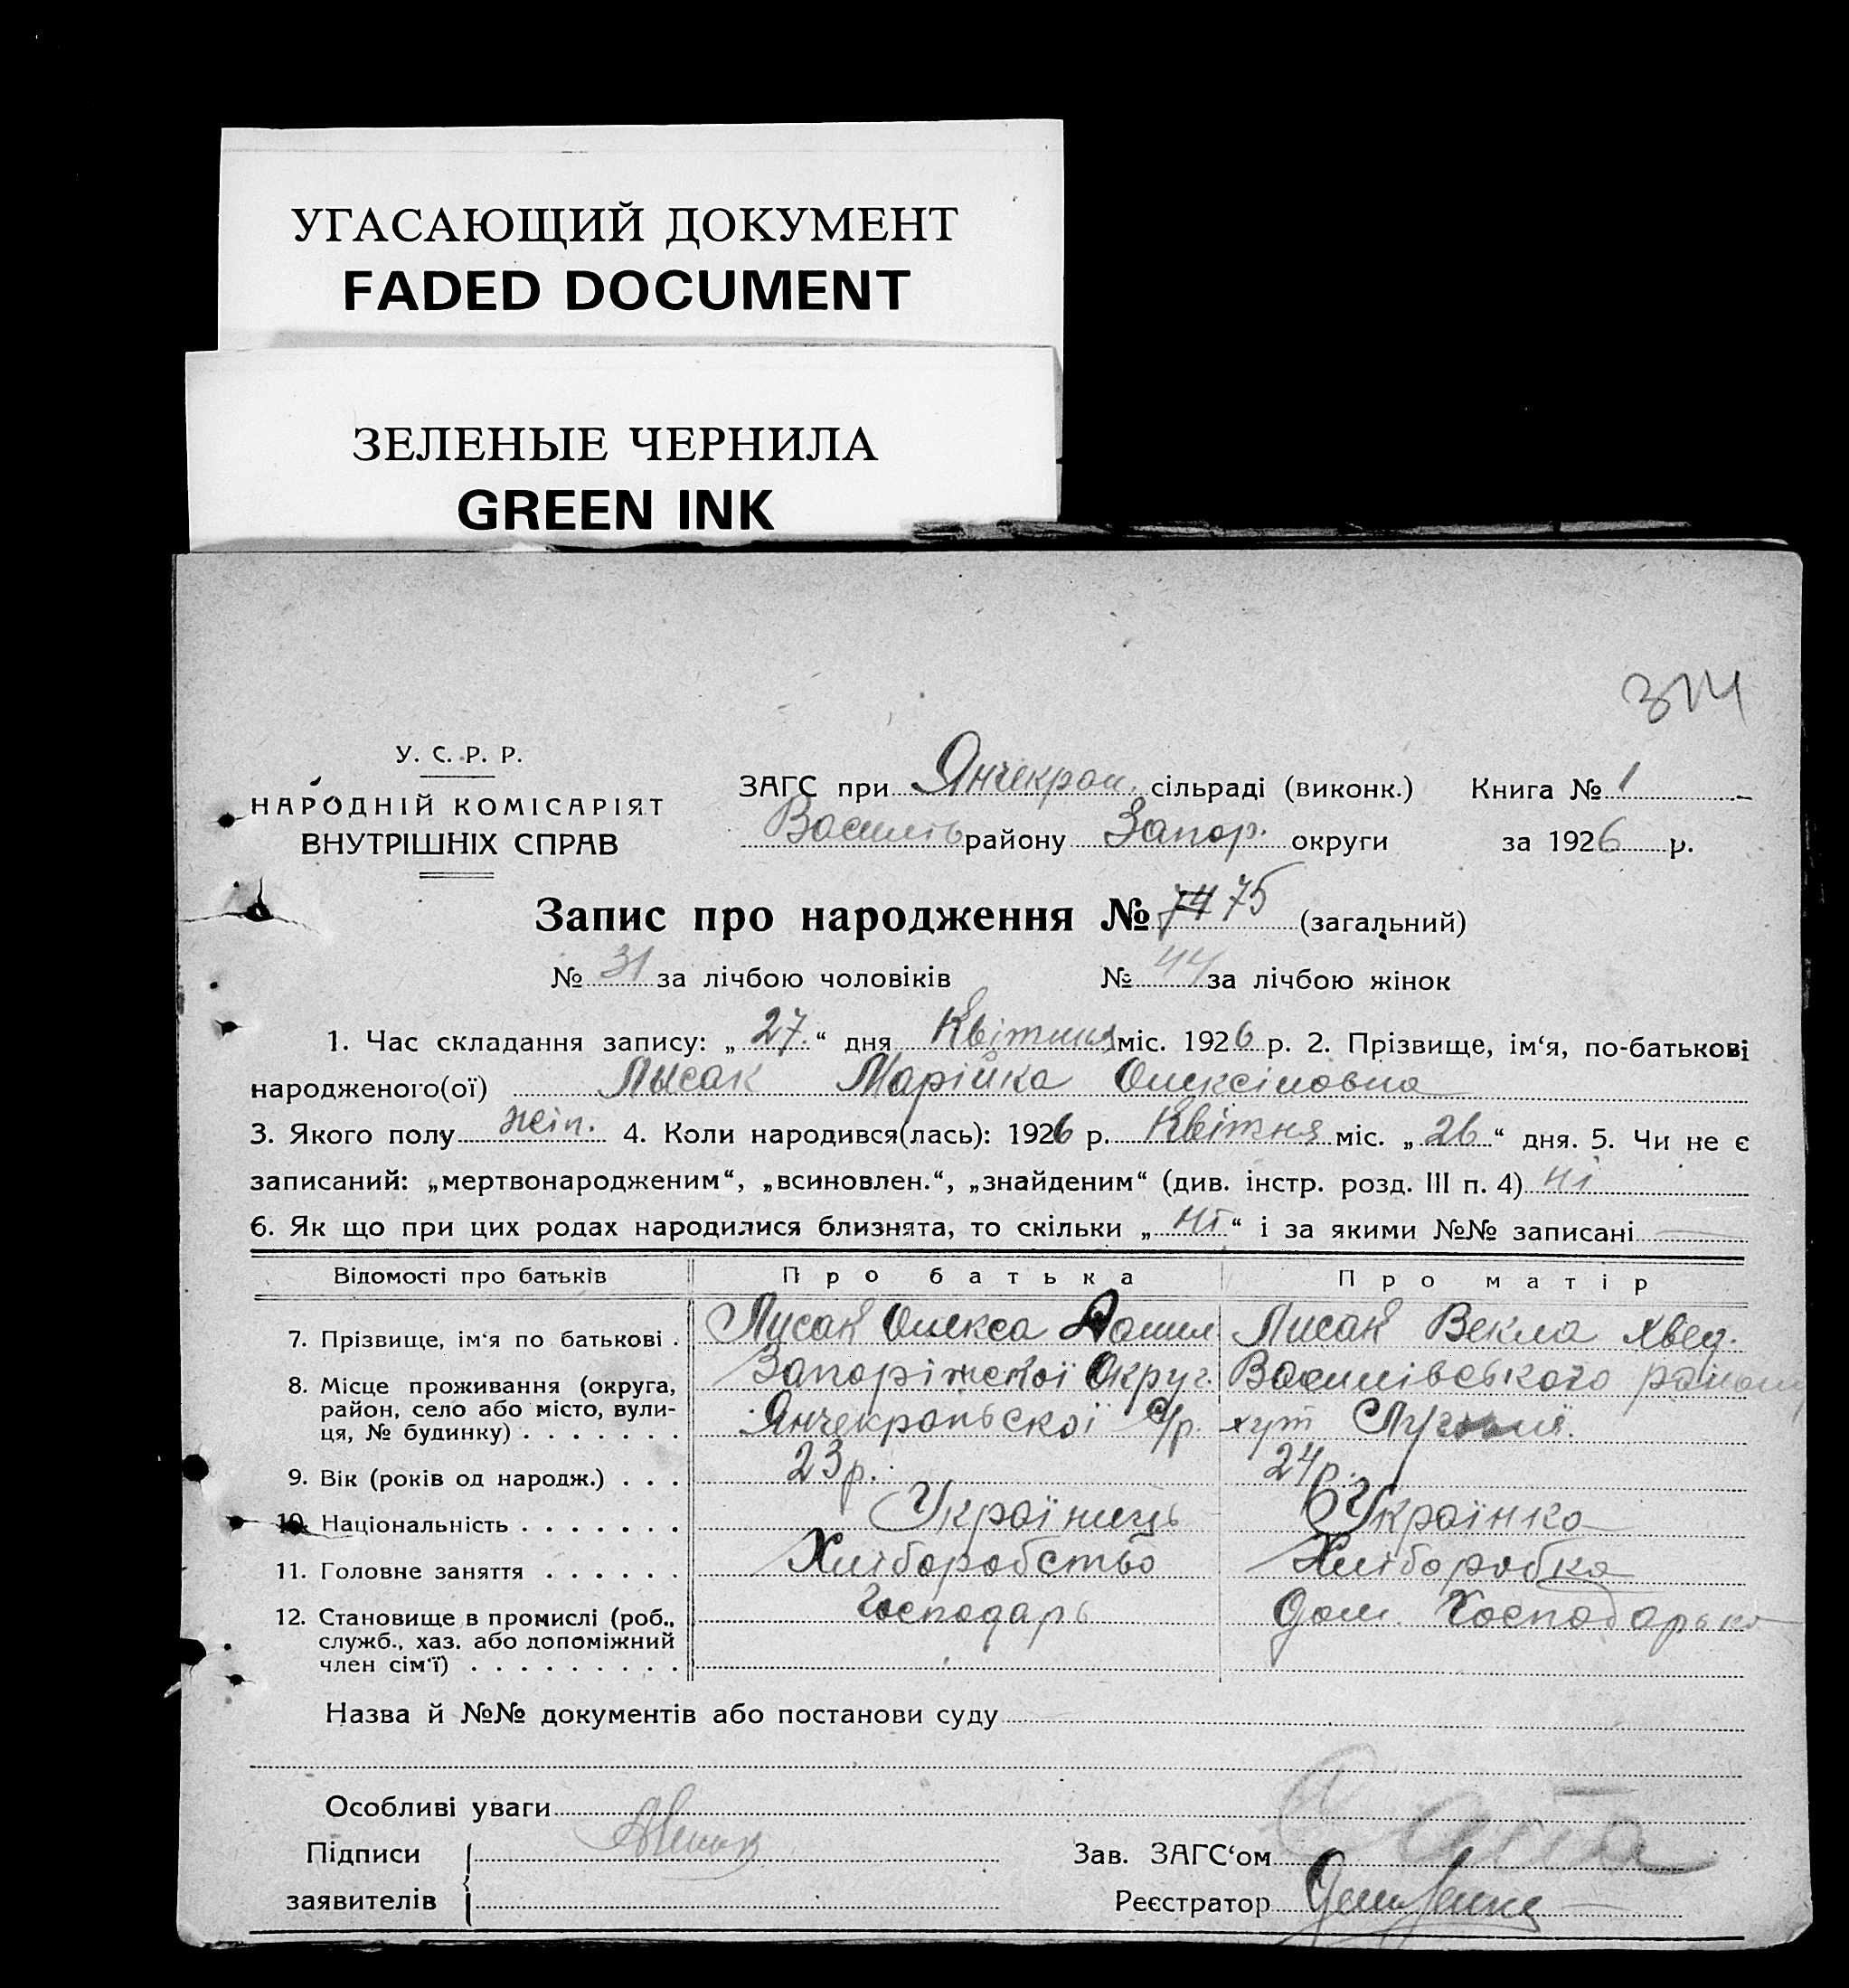 УГАСАЮЩИЙ ДОКУМЕНТ
FADED DOCUMENT
ЗЕЛЕНЫЕ ЧЕРНИЛА
GREEN INK
314
У. С. Р. Р.
НАРОДНІЙ КОМІСАРІЯТ
ВНУТРІШНІХ СПРАВ
ЗАГС при Янчекрак. сільраді (виконк.) Книга № 1
Василів району Запор. округи за 1926 р.
Запис про народження № 74 75 (загальний)
№ 31 за лічбою чоловіків № 44 за лічбою жінок
1. Час складання запису: „27.“ дня Квітня міс. 1926 р. 2. Прізвище, ім‘я, по-батькові
народженого(ої) Лысак Марійка Олексіиовна
3. Якого полу жін. 4. Коли народився(лась): 1926 р. Квітня міс. „26“ дня. 5. Чи не є
записаний: „мертвонародженим“, „всиновлен.“, „знайденим“ (див. інстр. розд. III п. 4) ні
6. Як що при цих родах народилися близнята, то скільки „ні“ і за якими №№ записані —
Відомості про батьків Про батька Про матір
7. Прізвище, ім‘я по батькові . Лисак Олекса Лисак Векла Хвед.
8. Місце проживання (округа, Запоріжскої Округ. Василівського району
район, село або місто, вули- Янчекракьскої с/р. хут
ця, № будинку) . . . . . . .
9. Вік (років од народж.) . . . 23 р. 24 р.
10. Національність . . . . . . . Українець Українка
11. Головне заняття . . . . . . Хліборобство Хліборобка
12. Становище в промислі (роб., Господарь дом. Хосподарька
служб., хаз. або допоміжний
член сім‘ї) . . . . . . . . .
Назва й №№ документів або постанови суду
Особливі уваги
Підписи Зав. ЗАГС‘ом
заявителів Реєстратор